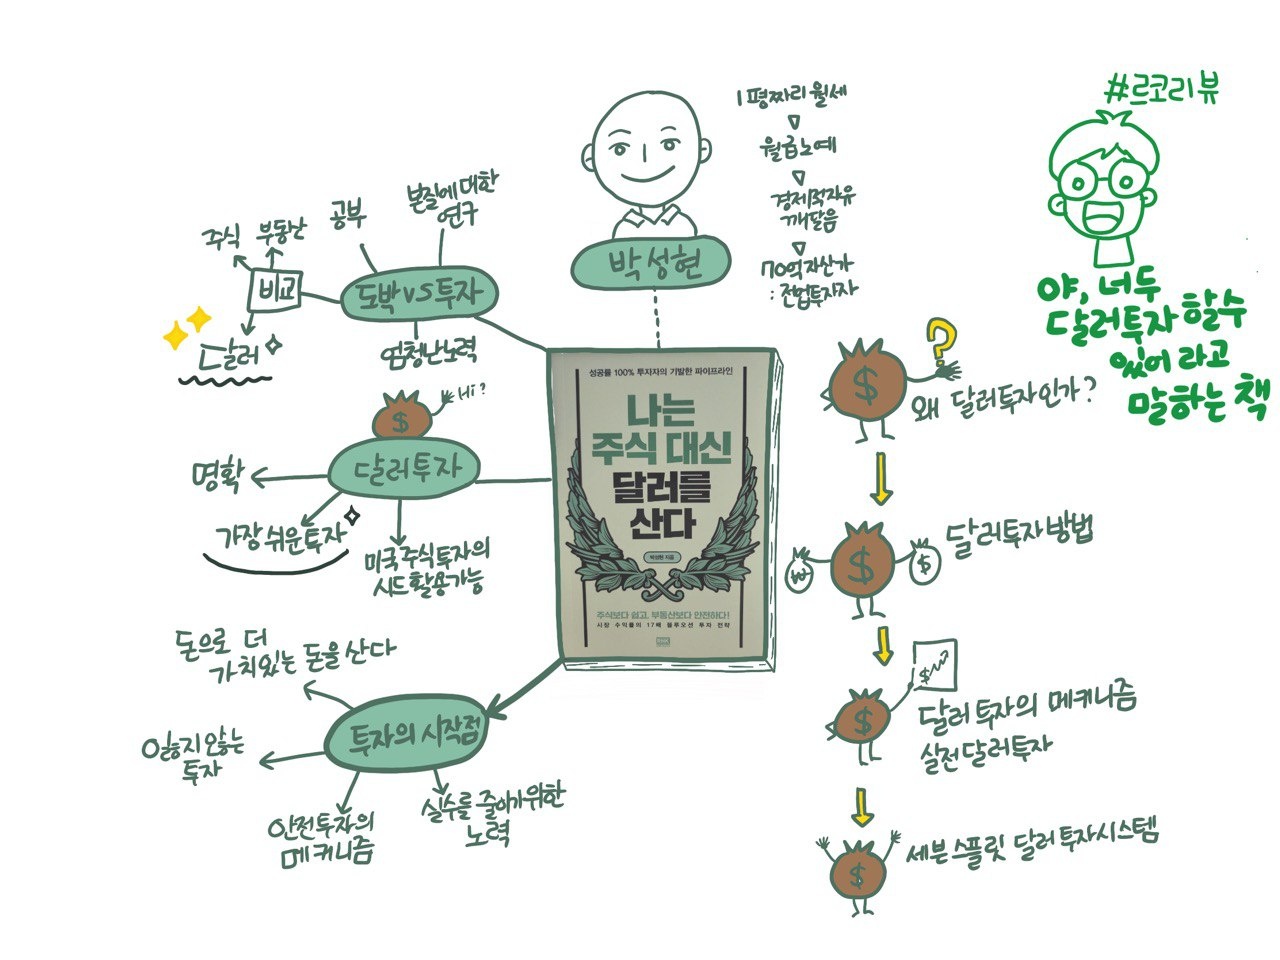 #르코리뷰
야, 너두
달러투자 할수
있어 라고
말하는 책
1평짜리 월세
월급노예
경제적자유
깨달음
70억자산가
: 전업투자자
박성현
주식 부동산
공부
본질에 대한
연구
비교
도박 VS 투자
달러
엄청난노력
Hi?
$
달러투자
명확
가장 쉬운 투자
미국주식투자의
시드활용가능
돈으로 더
가치있는 돈을 산다
투자의 시작점
잃지않는
투자
안전투자의
메커니즘
실수를 줄이기위한
노력
성공률 100% 투자자의 기발한 파이프라인
나는
주식 대신
달러를
산다
박성현 지음
주식보다 쉽고, 부동산보다 안전하다!
시장 수익률의 17배 블루오션 투자 전략
RHK
?
$
왜 달러투자인가?
₩ $ $
달러투자방법
$ $
달러 투자의 메커니즘
실전달러투자
$
세븐스플릿 달러투자시스템